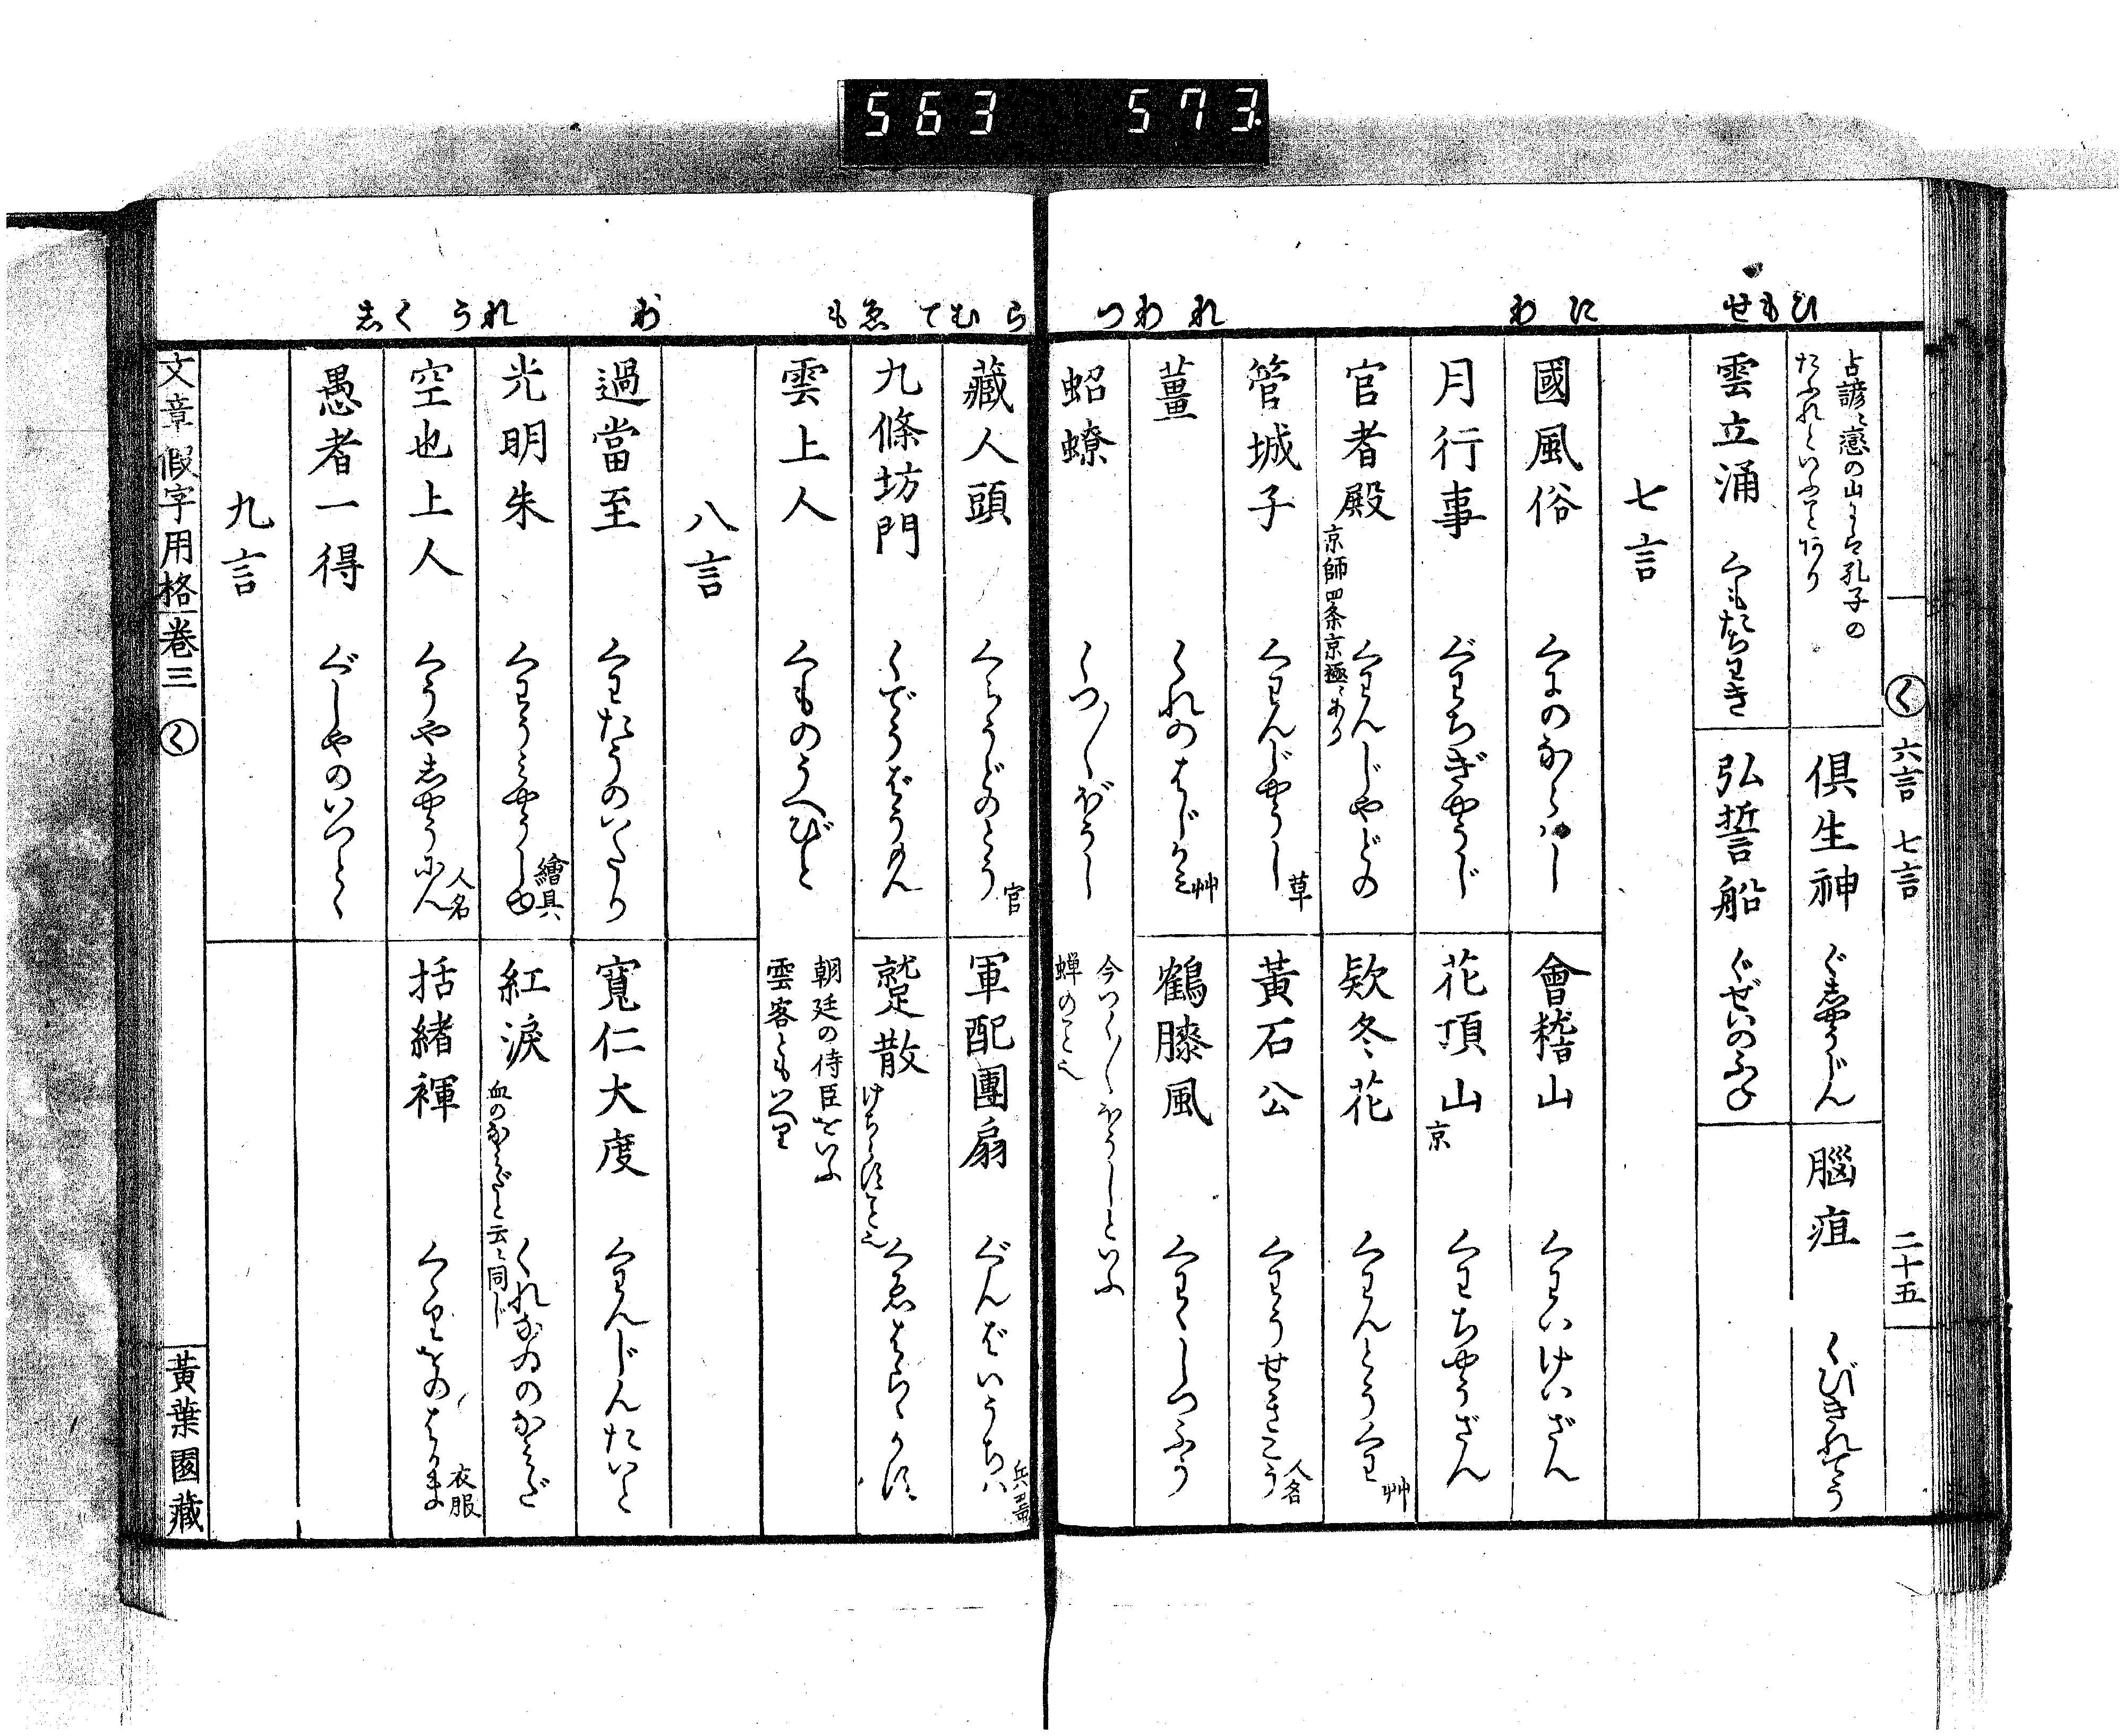 563 573.
ひ も せ
に わ
れ わ つ
く 六言 七言 二十五
古諺に戀の山には孔子の
たふれといふことあり
倶生神 ぐしやうじん
腦疽 くびきれてう
雲立涌 くもたちわき
弘誓船 ぐぜいのふね
七言
國風俗 くにのならはし
會稽山 くわいけいざん
月行事 ぐわちぎやうじ
花頂山 京 くわちやうざん
官者殿 京師四条京極にあり くわんじやどの
欵冬花 くわんとうくわ 艸
管城子 くわんじやうし 草
黃石公 くわうせきこう 人名
薑 くれのはじかみ 艸
鶴膝風 くわくしつふう
蛁蟟 くつ〱ぼうし
今つく〱ほうしといふ
蝉のこと也
ら む て ゑ も
わ
れ う く し
藏人頭 くらうどのとう 官
軍配團扇 ぐんばいうちハ 兵器
九條坊門 くでうばうもん
蹵散 けちらすこと也 くゑはらゝかす
雲上人 くものうへびと
朝廷の侍臣をいふ
雲客ともいへり
八言
過當至 くわたうのいたり
寬仁大度 くわんじんたいど
光明朱 くわうみやうしゆ 繪具
紅淚 血のなみだと云に同じ くれなゐのなみだ
空也上人 くうやしやうにん 人名
括緒褌 くゝりをのはかま 衣服
愚者一得 ぐしやのいつとく
九言
文章假字用格 卷三 く 黃葉園藏